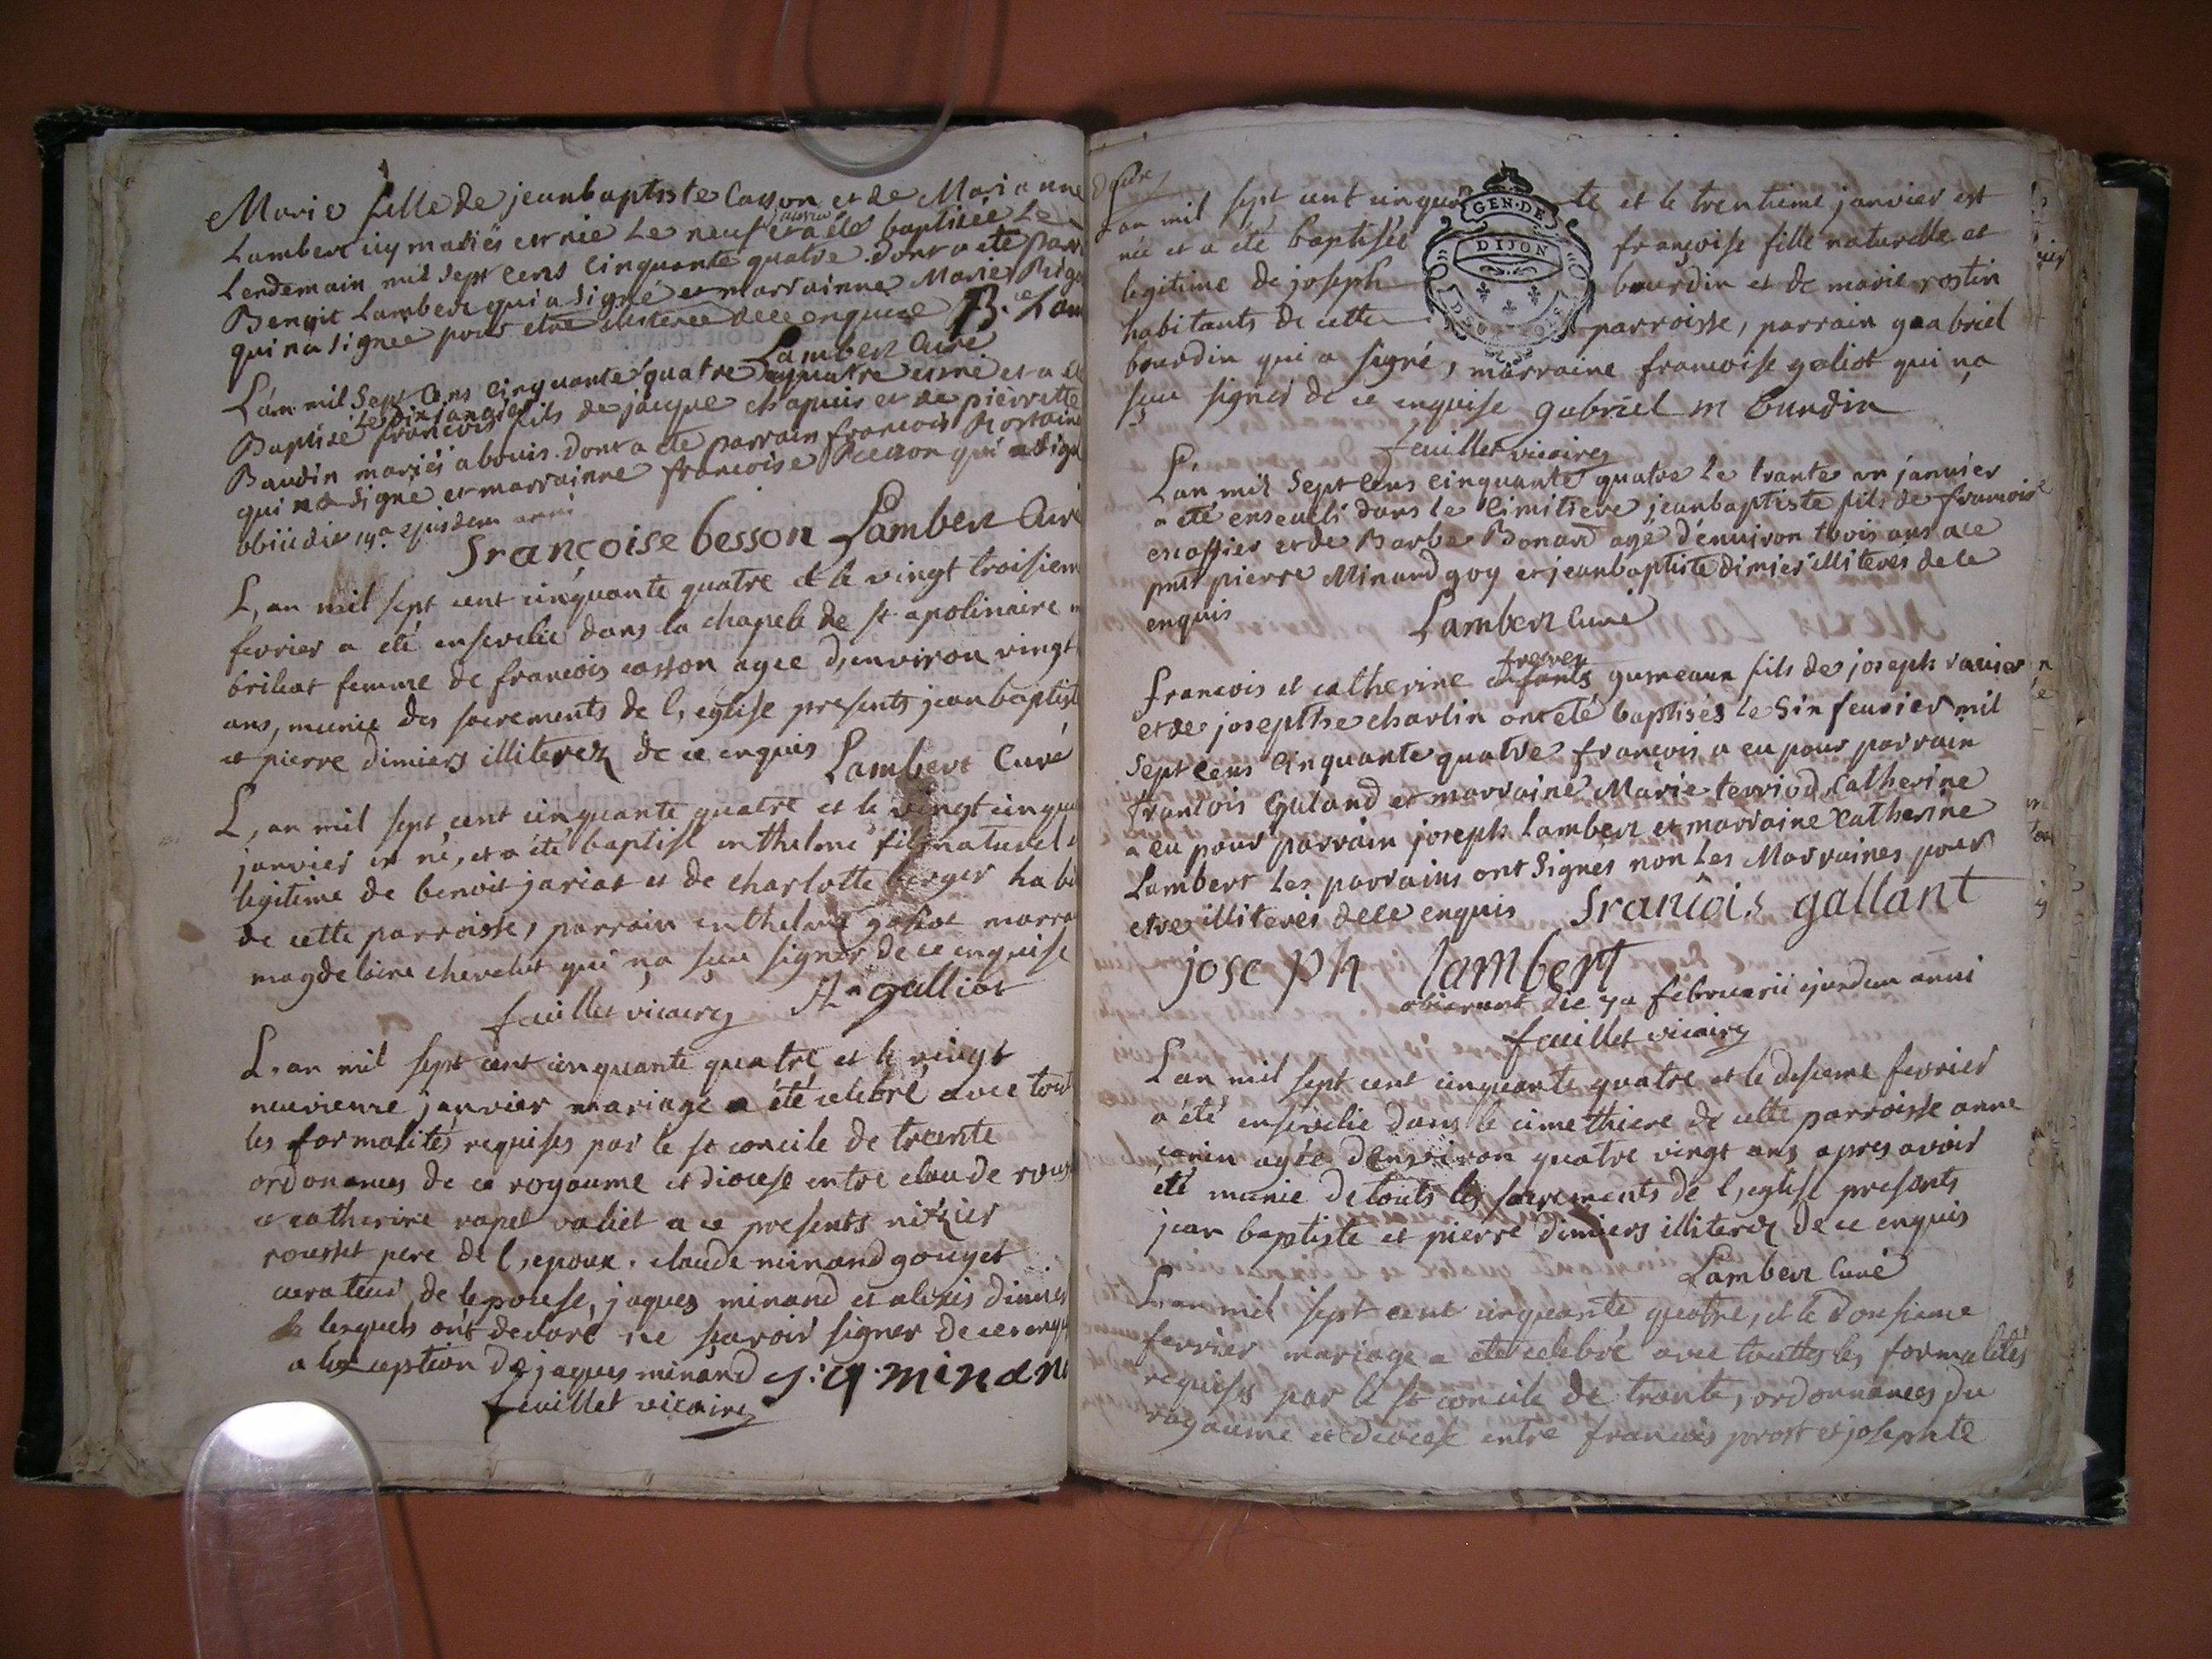 Marie fille de jeanbaptiste Casson et de Marianne
Lambert icy mariés est nie Le neuf et a eté baptisée Le
janvier
Lendemain mil Sept Cens Cinquante quatre dont a eté parr
Benoit Lambert qui a Signé et marrainne Marie
qui na signée pour etre illiterée de ce enquise B. Lam
Lambert Curé
L'an mil Sept Cens Cinquante quatre est né et a é
Le dix janvier
Baptisé francois fils de jacque chapuis et de pierrette
Baudin mariés a bouis dont a eté parrain francois Rostain
qui na Signé et marrainne francoise Besson qui a sign
obiit die 19a ejusdem anni
françoise besson Lambert Curé
L, an mil sept cent cinquante quatre et le vingt troisiem
fevrier a eté ensevelie dans la chapele de st apolinaire
brilat femme de francois casson agee d, environ vingt
ans, munie des sacrements de l, eglise presents jean baptist
et pierre dimiers illiterez de ce enquis Lambert Curé
L, an mil sept cent cinquante quatre et le vingt cinqu
janvier est né, et a été baptisé enthelme fils naturel
legitime de benoit jariat et de charlotte berger habi
de cette parroisse, parrain enthelme galiot marra
magdelaine chevelut qui na sçeu signer de ce enquise
feuillet vicaire A galliot
L, an mil sept cent cinquante quatre et le vingt
neuvieme janvier mariage a été celebré avec tout
les formalités requises par le st concile de trente
ordonances de ce royaume et diocese entre claude rous
et catherine rapet valiet a ce presents nizier
rousset pere de l, epoux, claude minand gouyet
curateur de lepouse, jaques minand et alexis dimier
lesquels ont declaré ne sçavoir signer de ce enqu
a lexception de jaques minand j: q. minan
feuillet vicaire
L'an mil sept cent cinquante et le trentieme janvier est
GEN. DE
DIJON
née et a été baptisée françoise fille naturelle et
legitime de joseph bourdin et de marie rostin
habitants de cette parroisse, parrain gaabriel
bourdin qui a signé, marraine francoise galiot qui na
sçeu signer de ce enquise gabriel m burdin
feuillet vicaire
L'an mil Sept Cens Cinquante quatre Le trante un janvier
a été enseveli dans le Cimitiere jeanbaptiste fils de francois
escoffier et de Barbe Bonard agé d'environ trois ans a ce
pnts pierre Minand goy et jeanbaptiste dimier illiterés de ce
enquis Lambert Curé
francois et catherine enfants gumeaux fils de joseph
freres
et de josepthe charlin ont été baptisés le Six feuvrier mil
Sept Cens Cinquante quatre francois a eu pour parrain
francois Galand et marraine Marie terriod, Catherine
a eu pour parrain joseph Lambert et marraine Catherine
Lambert Les parrains ont Signés non Les Marraines pour
etre illiterés de ce enquis francois gallant
joseph lambert
obierunt die 7a februarii ejusdem anni
feuillet vicaire
L'an mil sept cent cinquante quatre et le desieme fevrier
a été ensevelie dans le cimethiere de cette parroisse anne
carin agée d'environ quatre vingt ans apres avoir
eté munie de touts les sacrements de l, eglise presents
jean baptiste et pierre dimiers illiterez de ce enquis
Lambert Curé
L, an mil sept cent cinquante quatre, et le Donsieme
fevrier mariage a eté celebré avec touttes les formalités
requises par le st concile de trante, ordonnances du
royaume et diocese entre francois prost et josephte